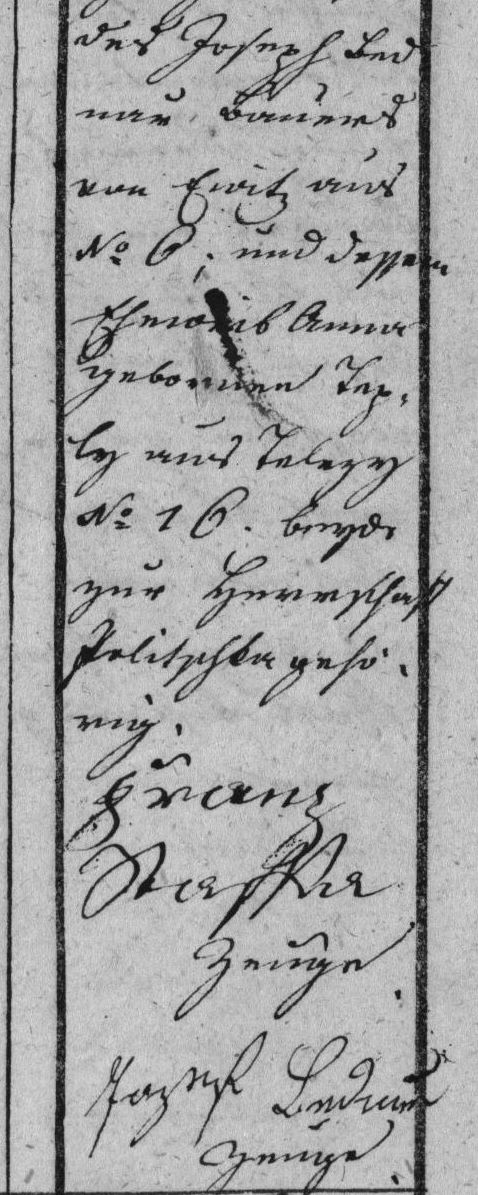 des Joseph Bed
nar Bauers
von Erwitz aus
No 6, und dessen
Eheweib Anna
gebornen Tep-
ly aus Telezy
No 16. beyde
zur Herrschaft
Politschka gehö-
rig.
Franz
Staffa
Zeuge
Jozef Bednar
Zeuge